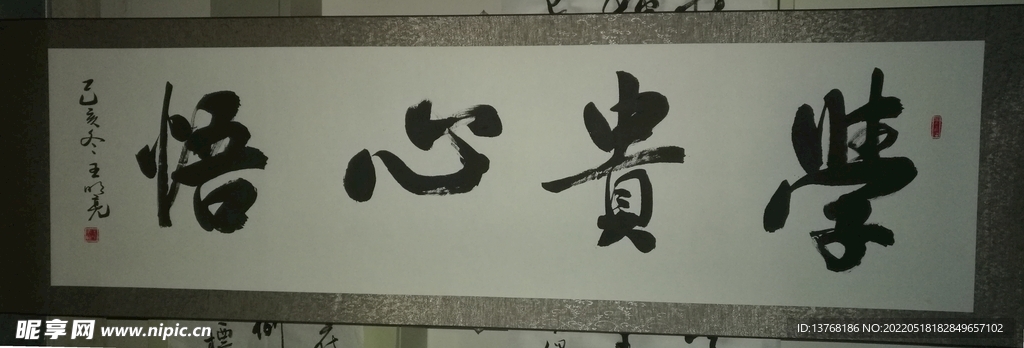 學貴心悟
己亥冬王明亮
昵享网 www.nipic.cn
ID:13768186 NO:20220518182849657102